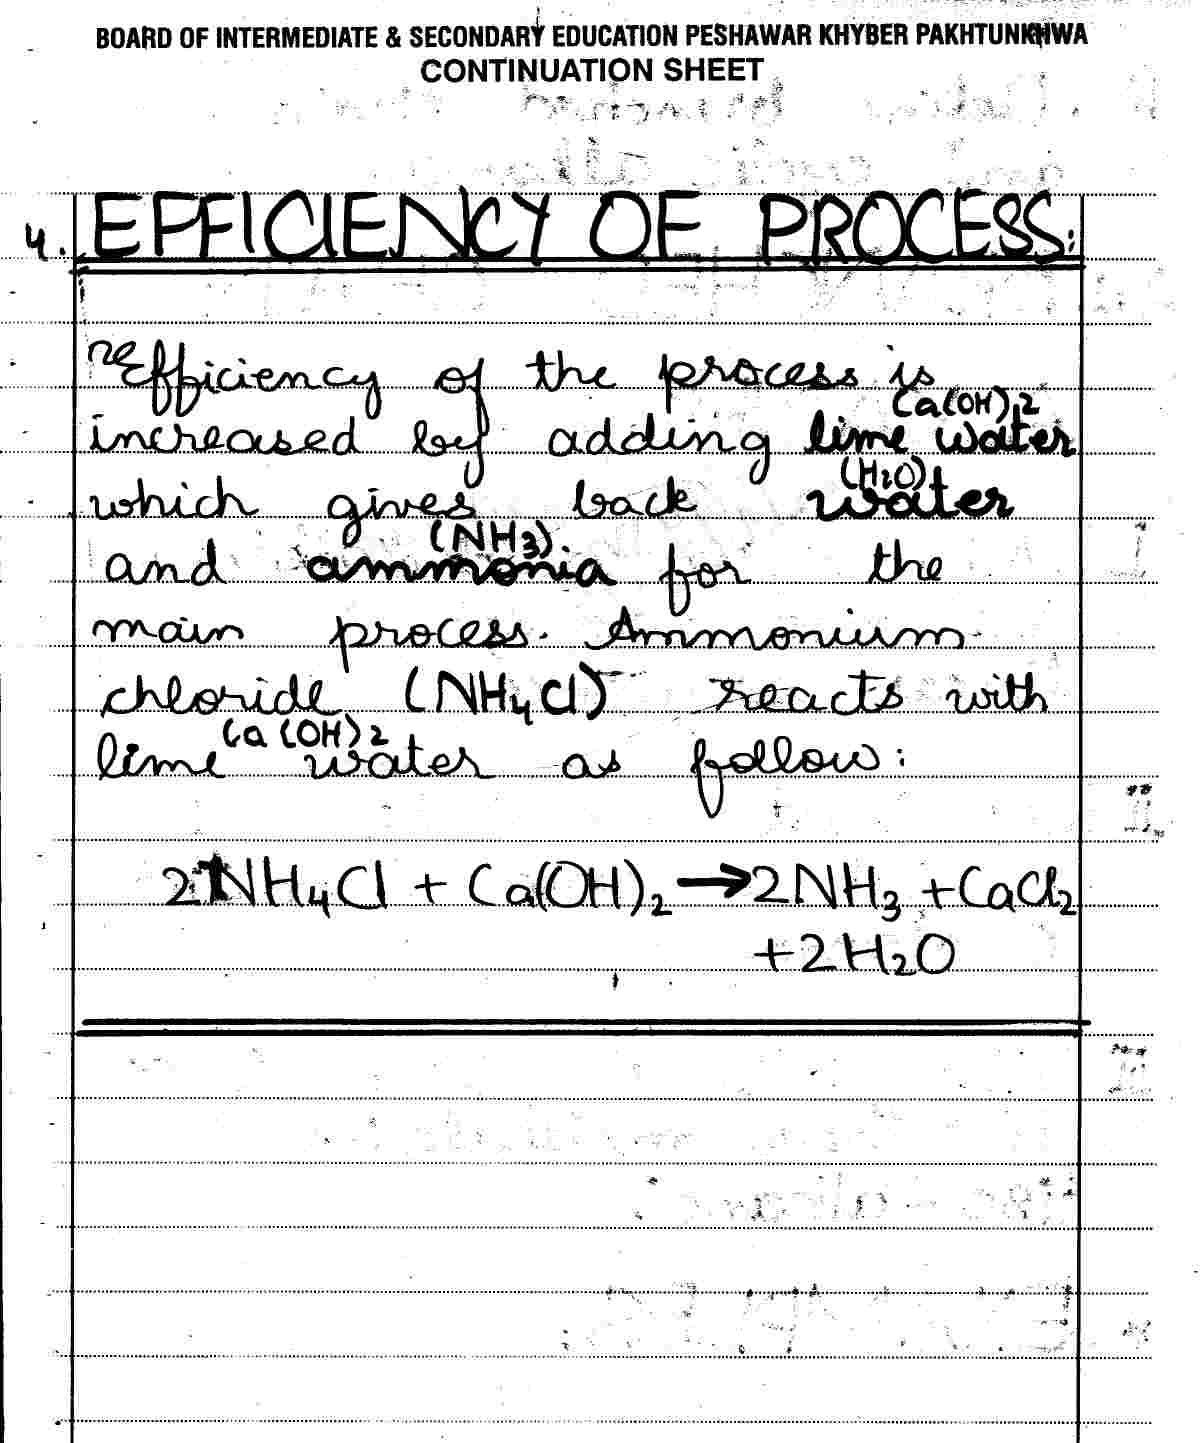 BOARD OF INTERMEDIATE & SECONDARY EDUCATION PESHAWAR KHYBER PAKHTUNKHWA
CONTINUATION SHEET
4. EFFICIENCY OF PROCESS:
Efficiency of the process is
Ca(OH)2
increased by adding lime water
(H2O)
which gives back water
(NH3).
and ammonia for the
main process. Ammonium
chloride (NH4Cl) reacts with
Ca(OH)2
lime water as follow:
2NH₄Cl + Ca(OH)₂ → 2NH₃ + CaCl₂
+2H₂O